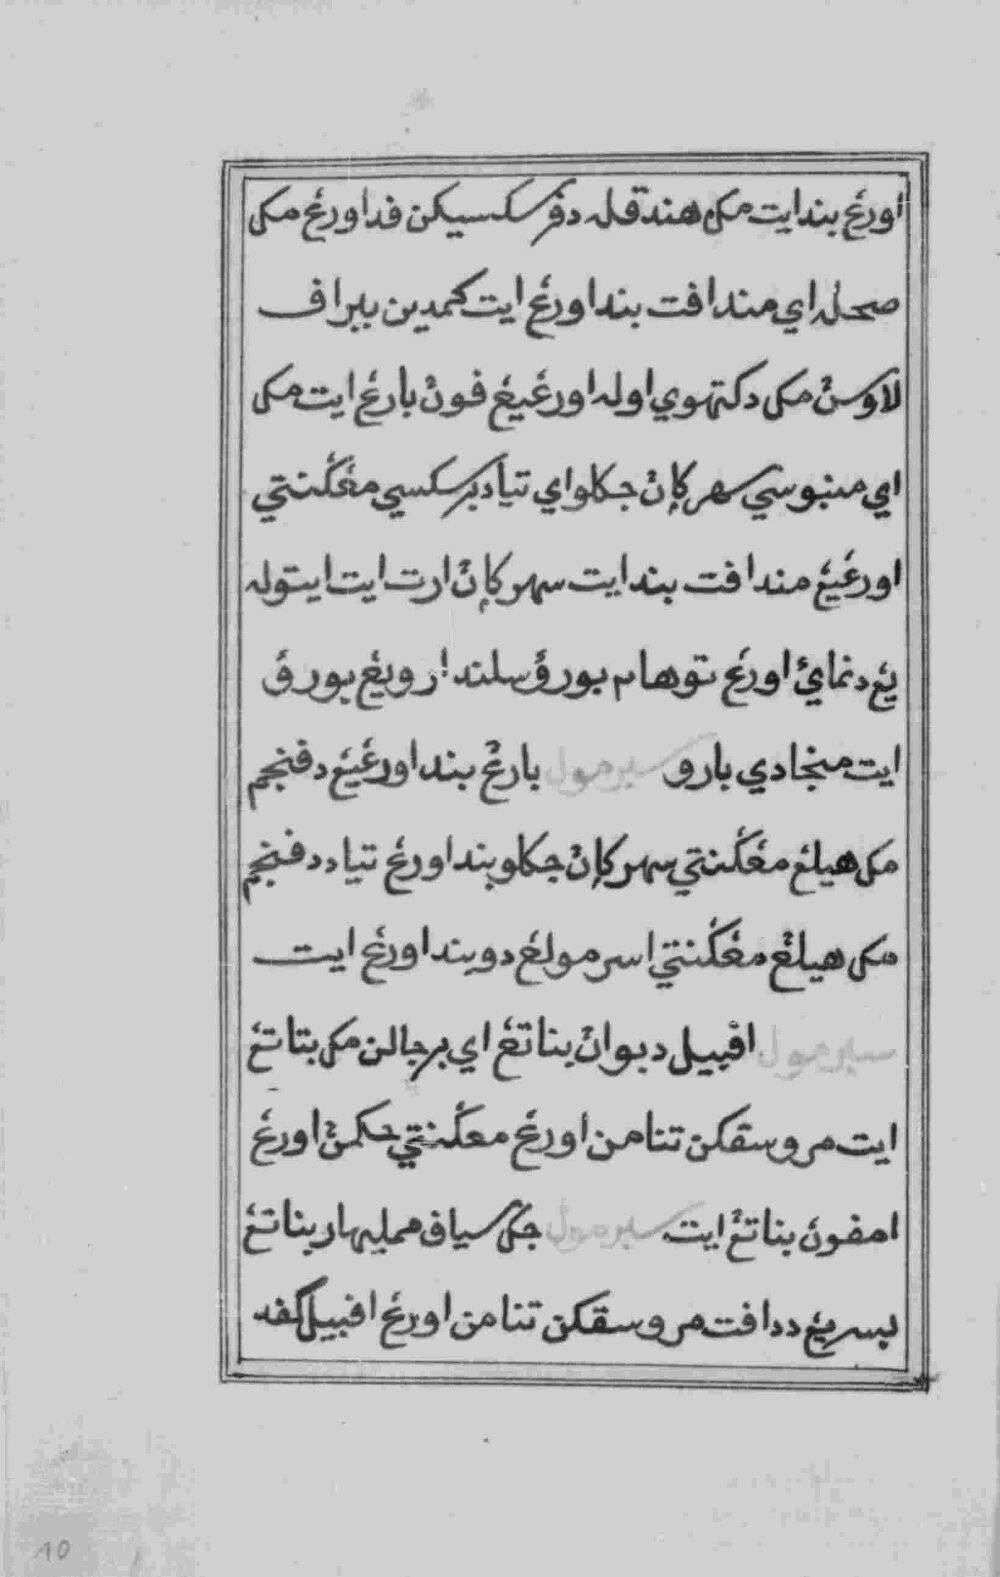 اورڠ بند ايت مک هندقله دڤرسکسيکن ڤد اورڠ مک
صحله اي مندافت بند اورڠ ايت کمدين ببراف
لاوسڽ مک دکتهوي اوله اورڠيڠ ڤوڽ بارڠ ايت مک
اي منبوسي سهرݢاڽ جکلو اي تياد برسکسي مڠݢنتي
اورڠيڠ مندافت بند ايت سهرݢاڽ ارت ايت ايتوله
يڠ دنماي اورڠ توهام بوروٴ سلندارويڠ بوروٴ
ايت منجادي بارو سبرمول بارڠ بند اورڠيڠ دڤنجم
مک هيلڠ مڠݢنتي سهرݢاڽ جکلو بند اورڠ تياد دڤنجم
مک هيلڠ مڠݢنتي اسرمولڠ دوبند اورڠ ايت
سبرمول اڤبيل دبواڽ بناتڠ اي برجالن مک بتاتڠ
ايت مروسقکن تنامن اورڠ مڠݢنتي حکمڽ اورڠ
امفوڽ بناتڠ ايت سبرمول جک سياف ممليهار بناتڠ
بسريڠ دداڤت مروسقکن تنامن اورڠ اڤبيل کڤد
10